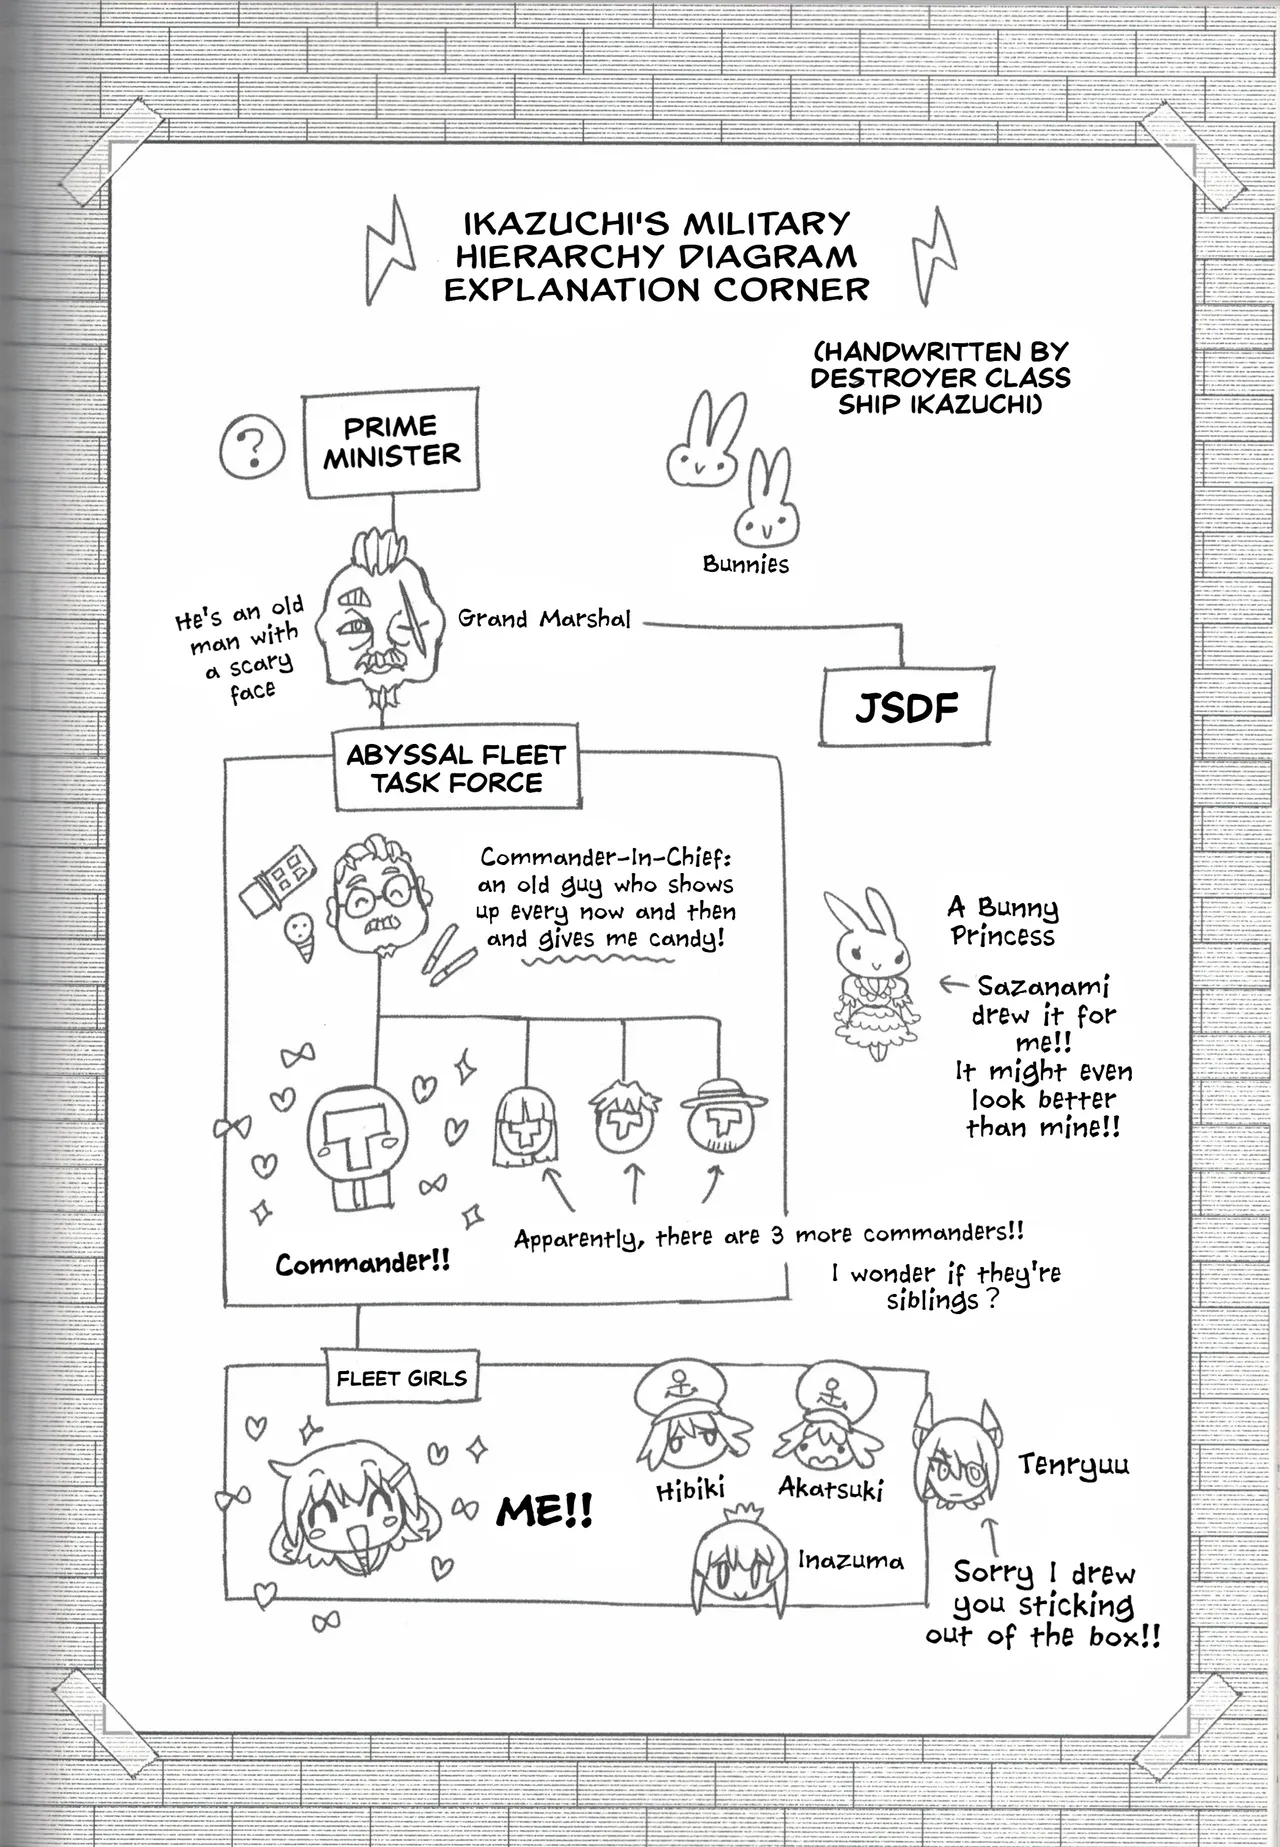 IKAZUCHI'S MILITARY
HIERARCHY DIAGRAM
EXPLANATION CORNER
(HANDWRITTEN BY
DESTROYER CLASS
SHIP IKAZUCHI)
?
PRIME
MINISTER
Bunnies
He's an old
man with
a scary
face
Grand Marshal
JSDF
ABYSSAL FLEET
TASK FORCE
Commander-In-Chief:
an old guy who shows
up every now and then
and gives me candy!
A Bunny
Princess
Sazanami
drew it for
me!!
It might even
look better
than mine!!
Commander!!
Apparently, there are 3 more commanders!!
I wonder if they're
siblings?
FLEET GIRLS
ME!!
Hibiki
Akatsuki
Inazuma
Tenryuu
Sorry I drew
you sticking
out of the box!!